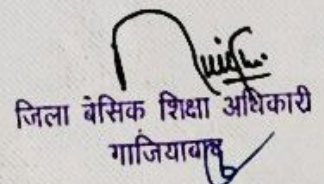 जिला बेसिक शिक्षा अधिकारी
गाजियाबाद